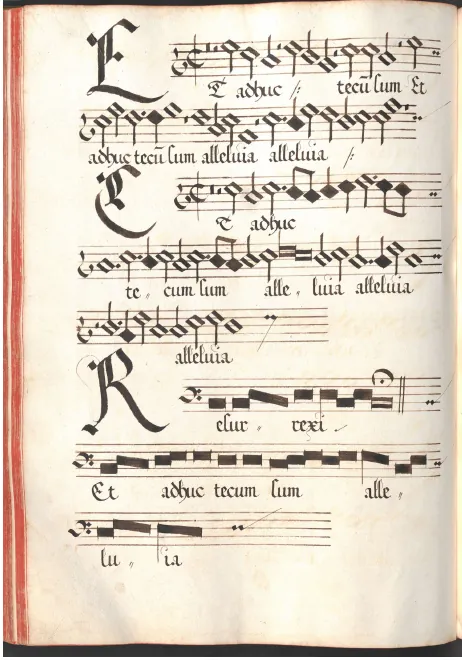 ET adhuc /: tecū sum Et
adhuc tecū sum alleluia alleluia /:
ET adhuc
te„ cum sum alle„ luia alleluia
alleluia
Resur„ rexi
Et adhuc tecum sum alle„
lu„ ia